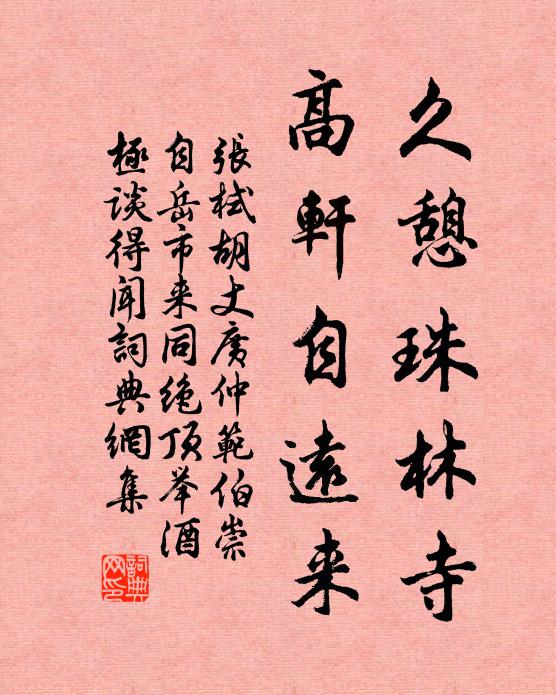 久憩珠林寺
高軒自遠来
張栻胡丈廣仲範伯崇
自岳市来同绝頂举酒
極谈得闻詞典網集
詞典網印